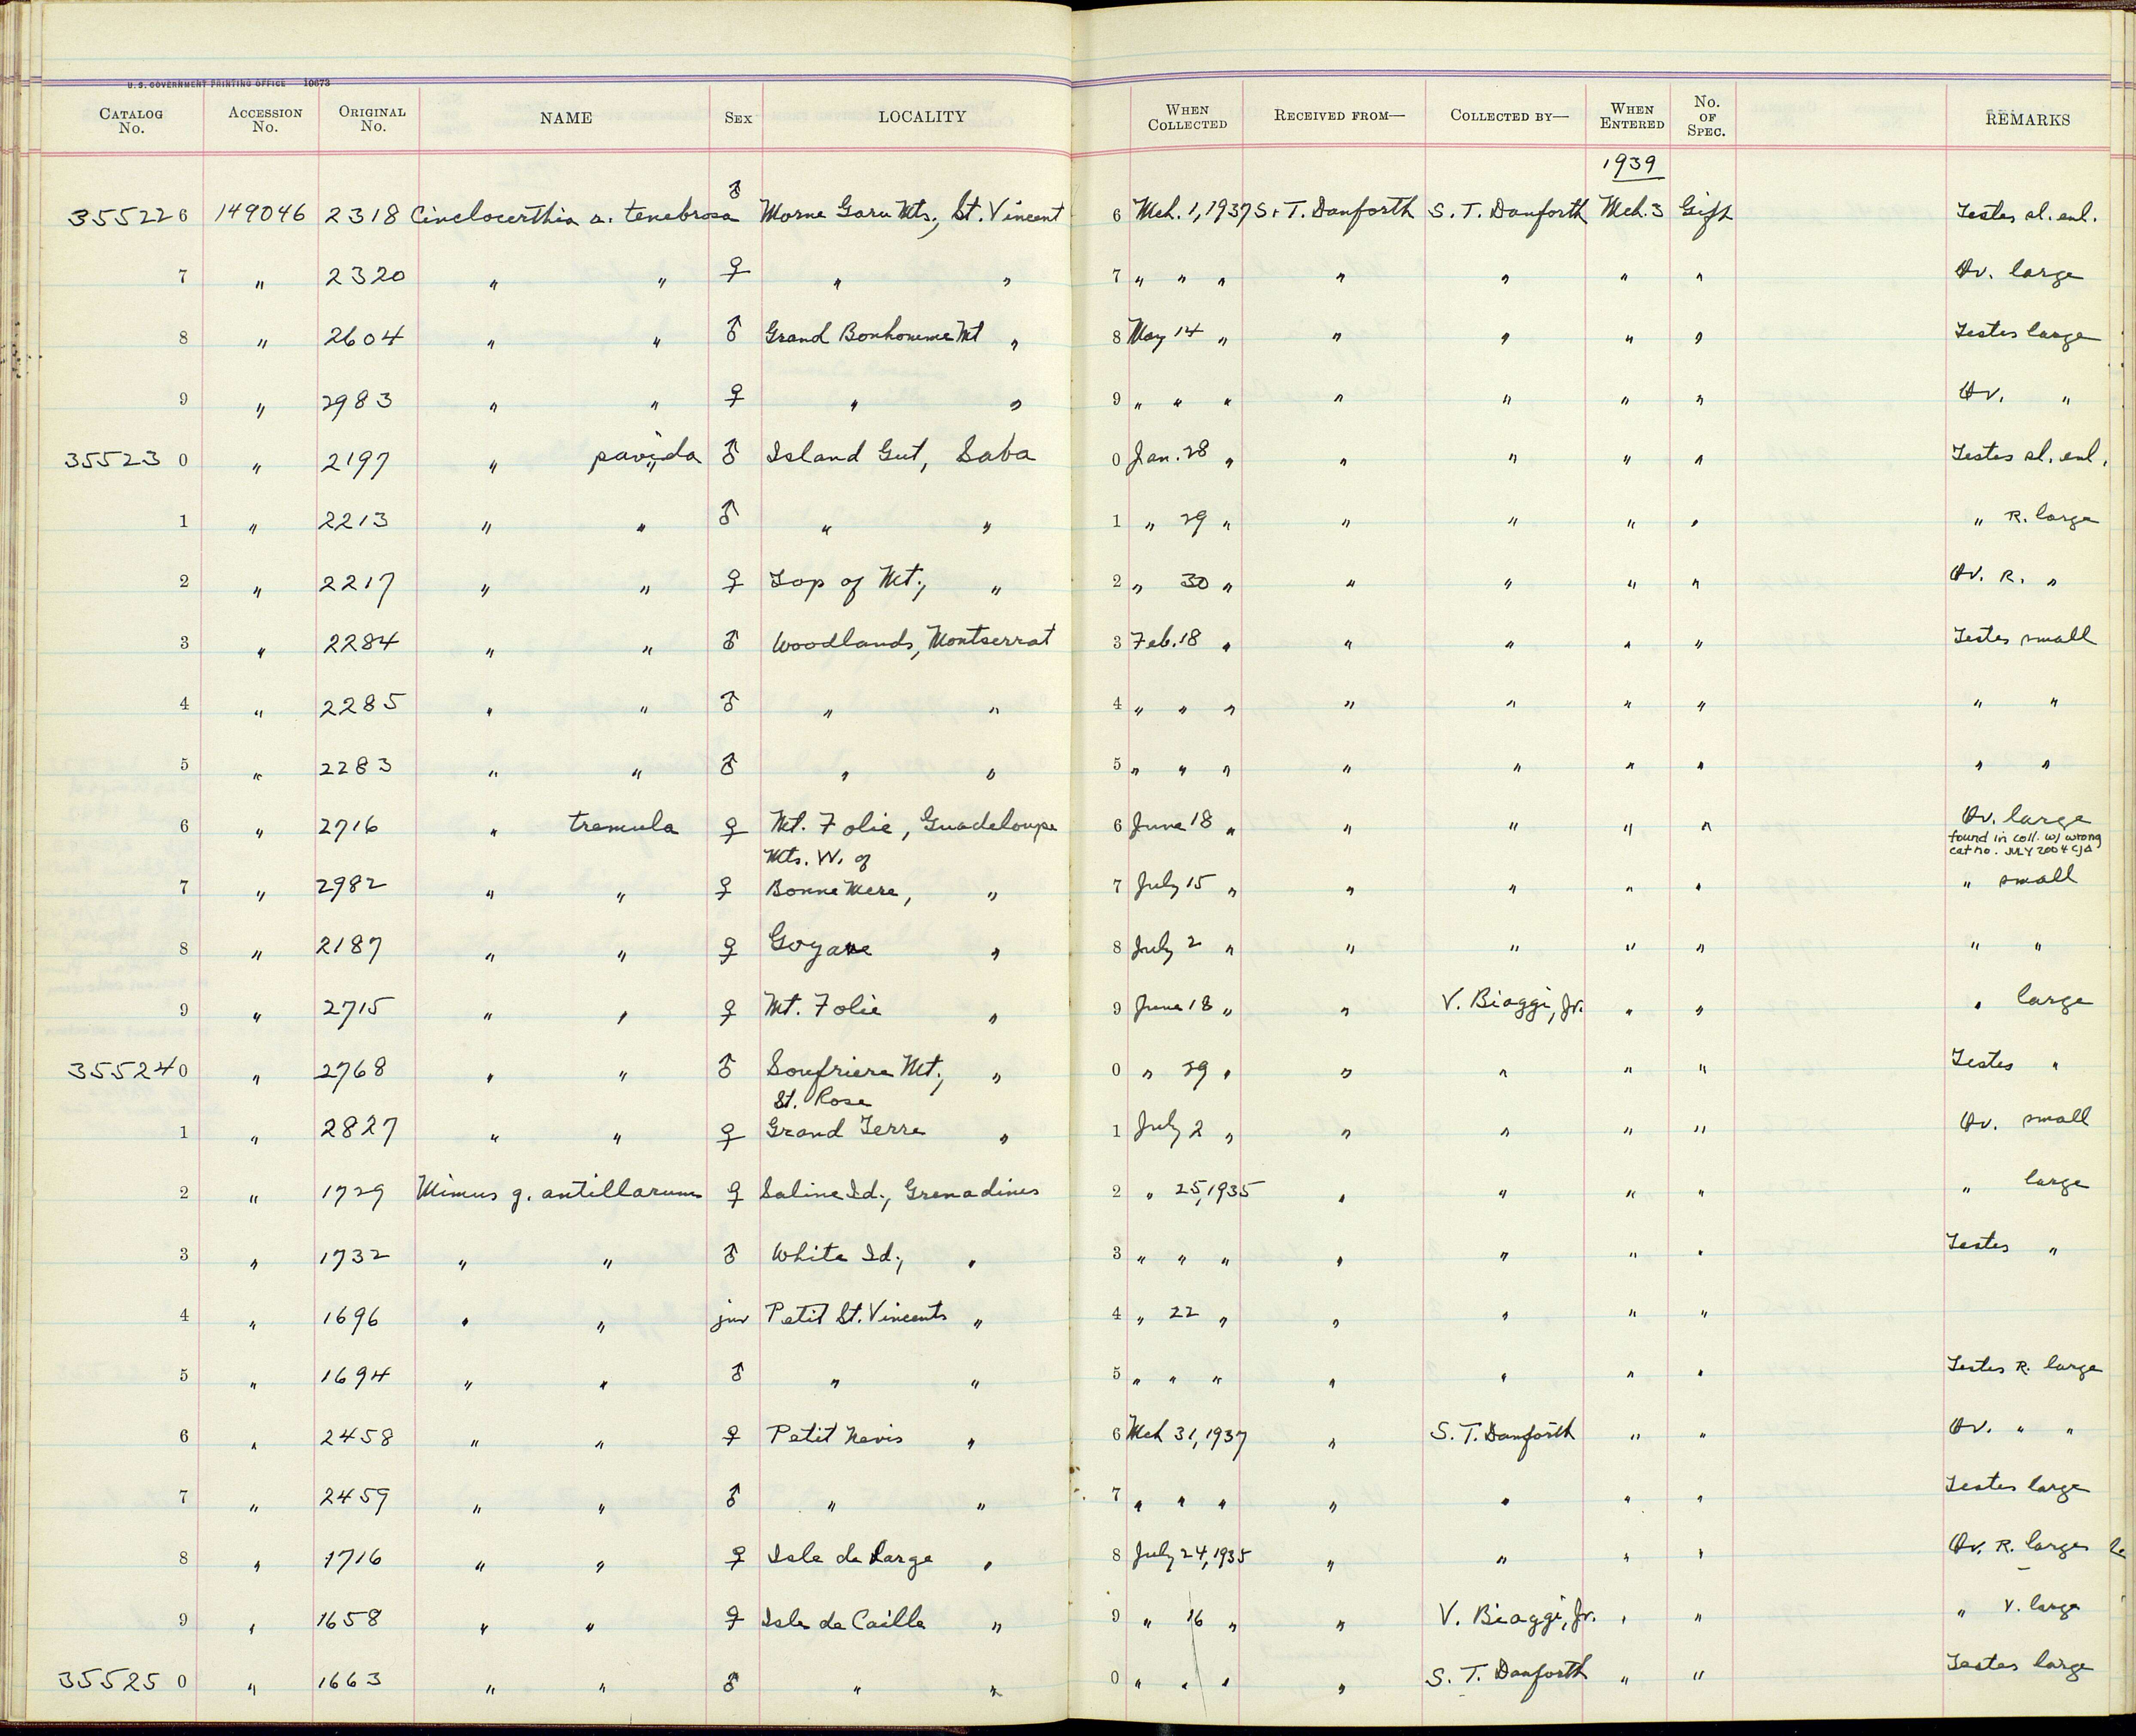 U. S. GOVERNMENT PRINTING OFFICE 10673
CATALOG No. ACCESSION No. ORIGINAL No. NAME SEX LOCALITY WHEN COLLECTED RECEIVED FROM— COLLECTED BY— WHEN ENTERED No. OF SPEC. REMARKS
1939
355226 149046 2318 Cinclocerthia a. tenebrosa ♂ Morne Garu Mts., St. Vincent 6 Mch. 1, 1937 S. T. Danforth S. T. Danforth Mch. 3 Gift Testes sl. enl.
7 " 2320 " " ♀ " " 7 " " " " " " " Ov. large
8 " 2604 " " ♂ Grand Bonhomme Mt " 8 May 14 " " " " " Testes large
9 " 2983 " " ♀ " " 9 " " " " " " " Ov. "
355230 " 2197 " pavida ♂ Island Gut, Saba 0 Jan. 28 " " " " " Testes sl. enl.
1 " 2213 " " ♂ " " 1 " 29 " " " " " " R. large
2 " 2217 " " ♀ Top of Mt., " 2 " 30 " " " " " Ov. R. "
3 " 2284 " " ♂ Woodlands, Montserrat 3 Feb. 18 " " " " " Testes small
4 " 2285 " " ♂ " " 4 " " " " " " " " "
5 " 2283 " " ♂ " " 5 " " " " " " " " "
6 " 2716 " tremula ♀ Mt. Folie, Guadeloupe 6 June 18 " " " " " Ov. large
found in coll. w/ wrong
cat no. JULY 2004 CJA
Mts. W. of
7 " 2982 " " ♀ Bonne Mere, " 7 July 15 " " " " " " small
8 " 2187 " " ♀ Goyave " 8 July 2 " " " " " " "
9 " 2715 " " ♀ Mt. Folie " 9 June 18 " " V. Biaggi, Jr. " " " large
355240 " 2768 " " ♂ Soufriere Mt., " 0 " 29 " " " " " Testes "
St. Rose
1 " 2827 " " ♀ Grand Terre " 1 July 2 " " " " " Ov. small
2 " 1729 Mimus g. antillarum ♀ Saline Id., Grenadines 2 " 25, 1935 " " " " " large
3 " 1732 " " ♂ White Id., " 3 " " " " " " " Testes "
4 " 1696 " " juv Petit St. Vincents " 4 " 22 " " " " "
5 " 1694 " " ♂ " " 5 " " " " " " " Testes R. large
6 " 2458 " " ♀ Petit Nevis " 6 Mch 31, 1937 " S. T. Danforth " " Ov. " "
7 " 2459 " " ♂ " " 7 " " " " " " " Testes large
8 " 1716 " " ♀ Isle de Large " 8 July 24, 1935 " " " " Ov. R. large
9 " 1658 " " ♀ Isle de Caille " 9 " 16 " " V. Biaggi, Jr. " " " V. large
355250 " 1663 " " ♂ " " 0 " " " " S. T. Danforth " " Testes large